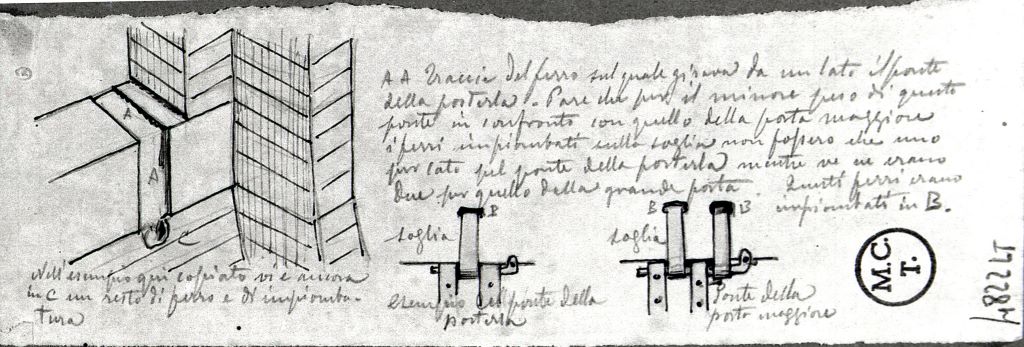 A A Traccia del ferro sul quale girava da un lato il ponte
della posterla. Pare che per il minore peso di questo
ponte in confronto con quello della porta maggiore
i ferri impiombati sulla soglia non fossero che uno
per lato pel ponte della posterla mentre ve ne erano
due per quello della grande porta. Questi ferri erano
impiombati in B.
A
A
C
Nell'esempio qui copiato vi è ancora
in C un resto di ferro e di impiomba-
tura
B
soglia
Esempio del ponte della
posterla
B
B
soglia
Ponte della
porta maggiore
M.C.
T.